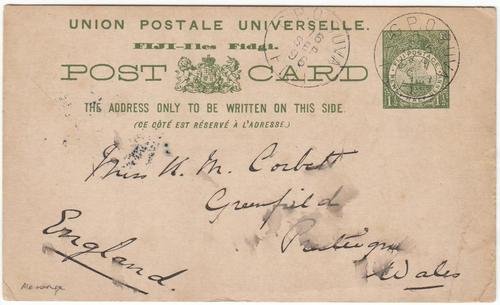 UNION POSTALE UNIVERSELLE.
FIJI-Iles Fidgi.
POST CARD
THE ADDRESS ONLY TO BE WRITTEN ON THIS SIDE.
(CE CÔTÉ EST RÉSERVÉ À L'ADRESSE.)
Miss K. M. Corbett
Greenfield
Presteign
Wales
England.
G.P.O. SUVA
G.P.O. SUVA